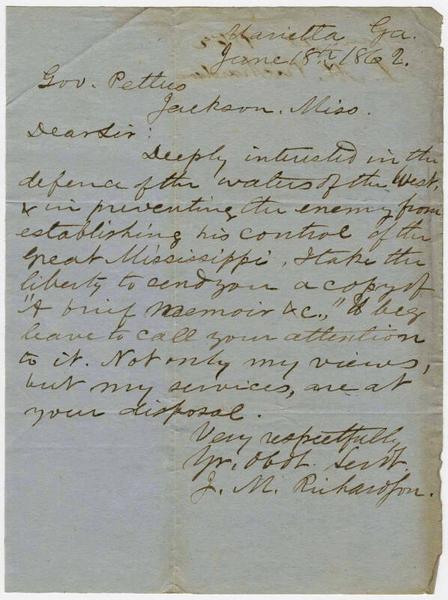 Marietta Ga.
June 18th, 1862.
Gov. Pettus
Jackson. Miss.
Dear Sir:
Deeply interested in the
defence of the waters of the West
& in preventing the enemy from
establishing his control of the
Great Mississippi, I take the
liberty to send you a copy of
"A brief memoir &c.," & beg
leave to call your attention
to it. Not only my views,
but my services, are at
your disposal.
Very respectfully
Yr. Obdt. Servt.
J. M. Richardson.